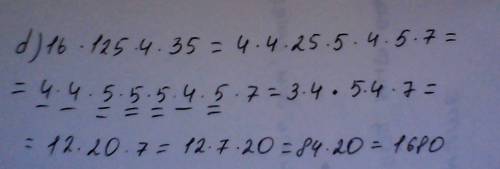 d) 16 · 125 · 4 · 35 = 4 · 4 · 25 · 5 · 4 · 5 · 7 =
= 4 · 4 · 5 · 5 · 5 · 4 · 5 · 7 = 3 · 4 · 5 · 4 · 7 =
= 12 · 20 · 7 = 12 · 7 · 20 = 84 · 20 = 1680